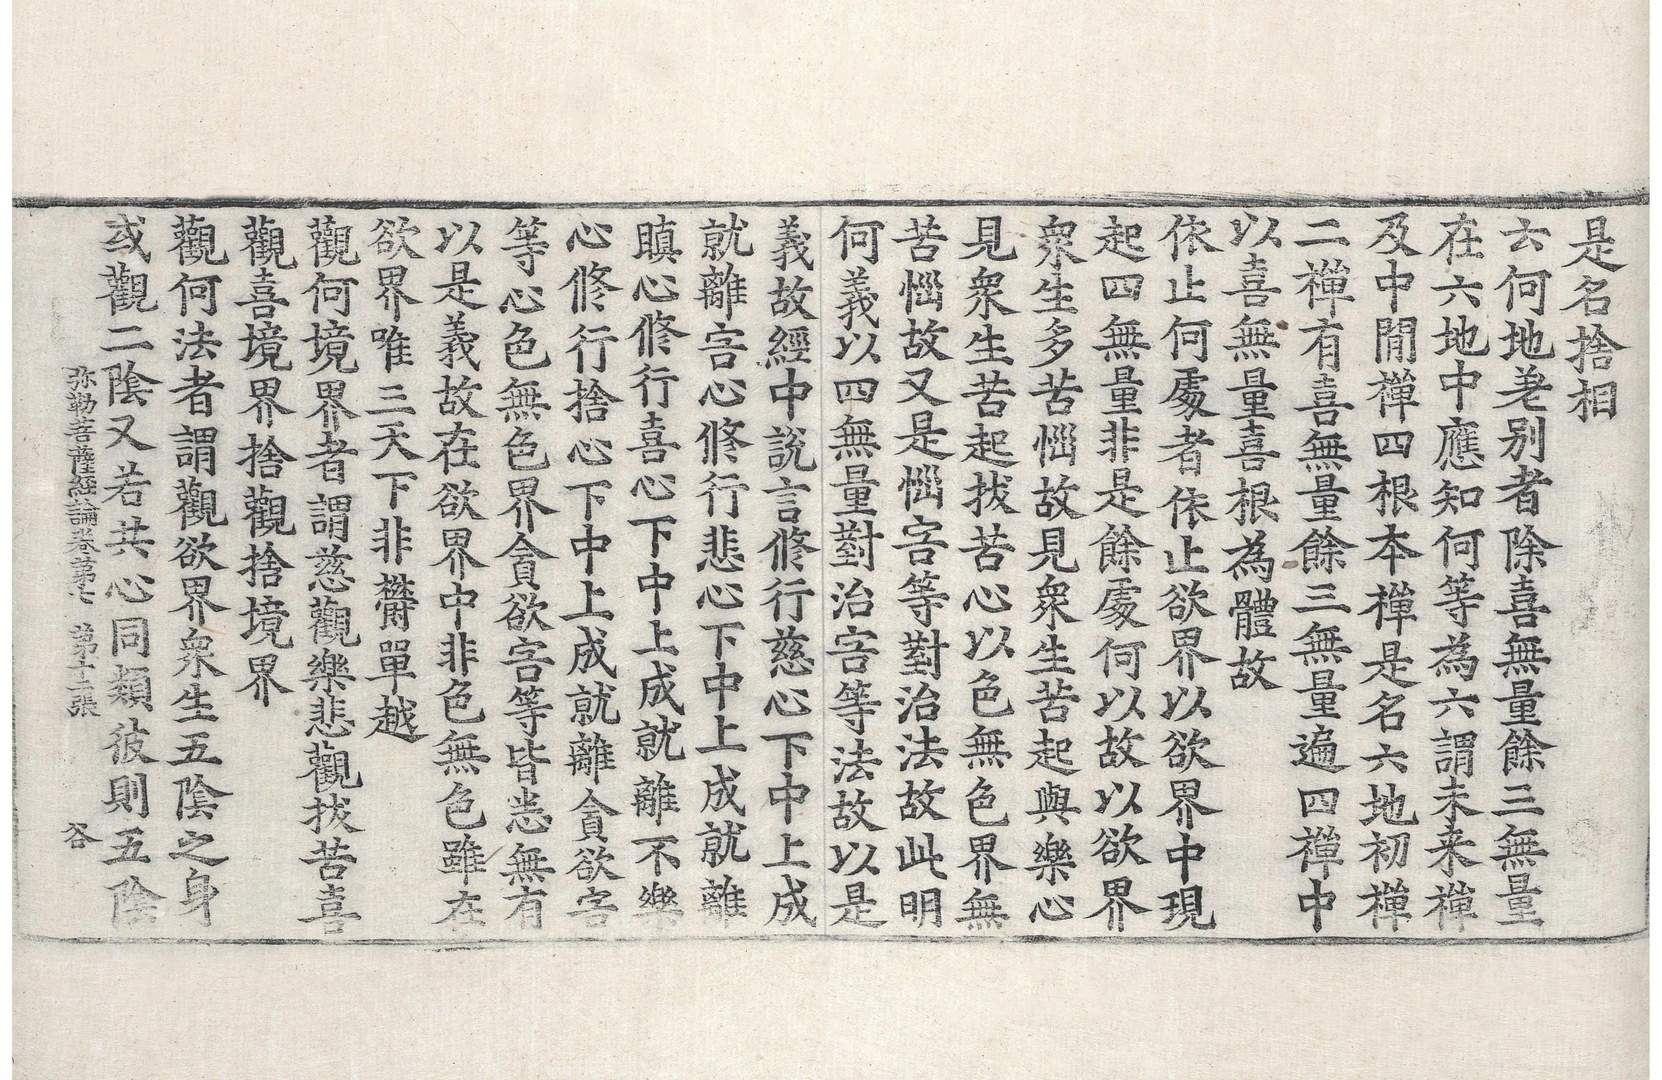 是名捨相
云何地差别者除喜無量餘三無量
在六地中應知何等為六謂未来禪
及中間禪四根本禪是名六地初禪
二禪有喜無量餘三無量遍四禪中
以喜無量喜根為體故
依止何處者依止欲界以欲界中現
起四無量非是餘處何以故以欲界
衆生多苦惱故見衆生苦起與樂心
見衆生苦起拔苦心以色無色界無
苦惱故又是惱害等對治法故此明
何義以四無量對治害等法故以是
義故經中說言修行慈心下中上成
就離害心修行悲心下中上成就離
瞋心修行喜心下中上成就離不樂
心修行捨心下中上成就離貪欲害
等心色無色界貪欲害等皆悉無有
以是義故在欲界中非色無色雖在
欲界唯三天下非欝單越
觀何境界者謂慈觀樂悲觀拔苦喜
觀喜境界捨觀捨境界
觀何法者謂觀欲界衆生五陰之身
或觀二陰又若共心同類彼則五陰
弥勒菩薩經論卷第七 第十二張 谷